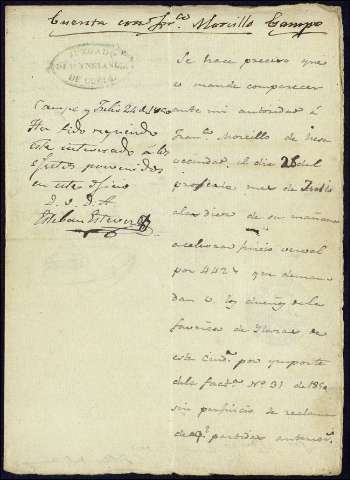 Cuenta con Fr.co Morcillo Campo
JUZGADO
DE
DE
Campo y Julio 24 de 18
Ha sido requerido
este interesado a los
efectos prevenidos
en este oficio
Esteban Estevez
Se hace preciso que
mande comparecer
ante mi autoridad á
Fran.co Morcillo de esa
vecindad, el dia 28 del
mes de Julio
a las diez de su mañana
a celebrar juicio verval
por 442 que deman
dan los dueños de la
favrica de de
esta ciud.d por ymporte
de la fact.a Nº 31 de 18
sin perjuicio de reclamar
partidas anterior.s